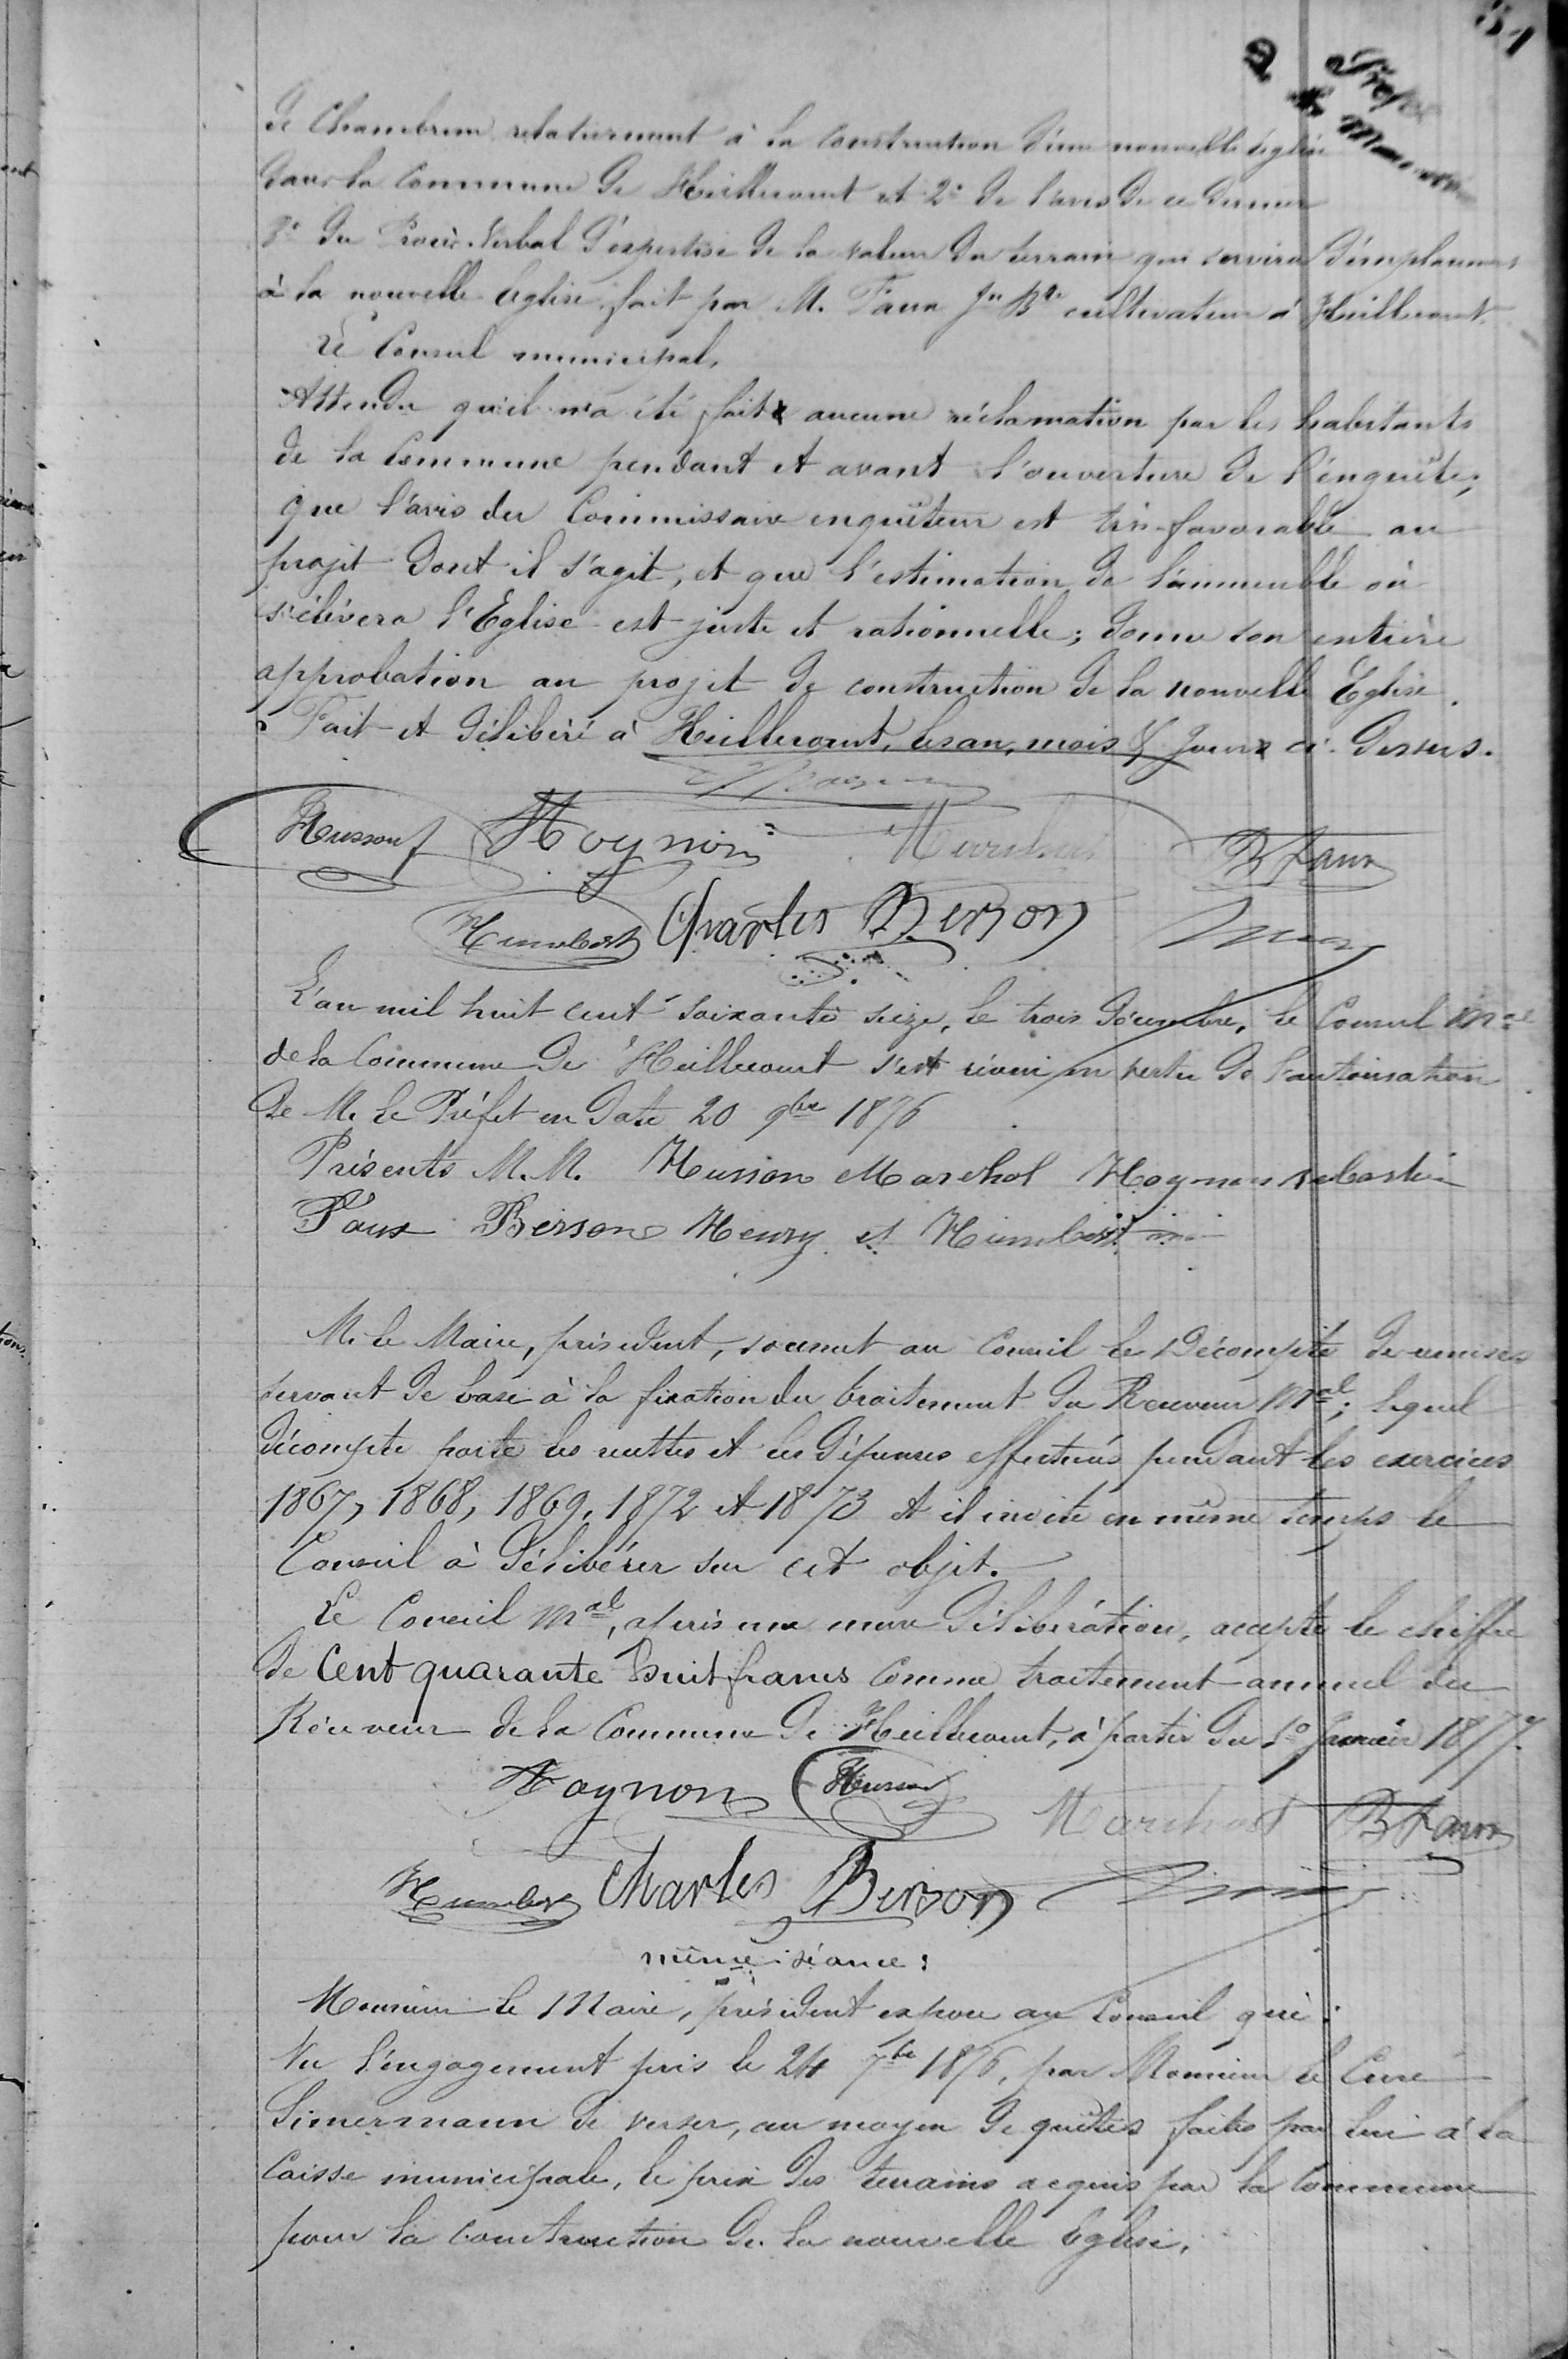 51
de Chambrun relativement à la construction d'une nouvelle église
dans la Commune de Heillecourt et 2° de l'avis de ce dernier
3° du Procès-Verbal d'expertise de la valeur du terrain qui servira d'emplacement
à la nouvelle Eglise, fait par M. Faux Jn Bte cultivateur à Heillecourt.
Le Conseil municipal,
Attendu qu'il n'a été fait aucune réclamation par les habitants
de la Commune pendant et avant l'ouverture de l'enquête,
que l'avis du Commissaire enquêteur est très-favorable au
projet dont il s'agit, et que l'estimation de l'immeuble où
s'élèvera l'Eglise est juste et rationnelle; donne son entière
approbation au projet de construction de la nouvelle Eglise.
Fait et délibéré à Heillecourt, les an, mois & jour ci-dessus.
Husson Hoynon Marchal B Faux
Humbert Charles Berson
L'an mil huit cent soixante seize, le trois Décembre, le Conseil Mal
de la Commune de Heillecourt s'est réuni en vertu de l'autorisation
de M. le Préfet en date 20 9bre 1876
Présents M.M. Husson Marchal Hoynon Sebastien
Faux Berson Henry et Humbert
M. le Maire, président, soumet au Conseil le Décompte de remises
servant de base à la fixation du traitement du Receveur Mal; lequel
décompte porte les recettes et les dépenses effectuées pendant les exercices
1867, 1868, 1869, 1872 et 1873 et il invite en même temps le
Conseil à délibérer sur cet objet.
Le Conseil Mal, après une mure délibération, accepte le chiffre
de Cent quarante huit francs comme traitement annuel du
Receveur de la Commune de Heillecourt, à partir du 1° Janvier 1877.
Hoynon Husson Marchal B Faux
Humbert Charles Berson
même séance:
Monsieur le Maire, président expose au Conseil que:
Vu l'engagement pris le 24 7bre 1876, par Monsieur le Curé
Simermann de verser, au moyen de quêtes faites par lui à la
Caisse municipale, le prix des terrains acquis par la Commune
pour la construction de la nouvelle Eglise,